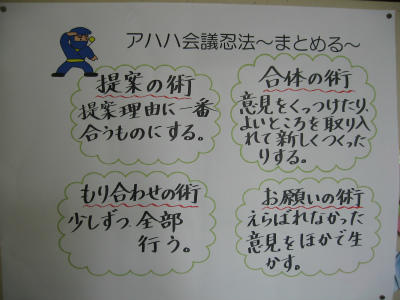 アハハ会議忍法～まとめる～
提案の術
提案理由に一番
合うものにする。
合体の術
意見をくっつけたり、
よいところを取り入
れて新しくつくった
りする。
もり合わせの術
少しずつ全部
行う。
お願いの術
えらばれなかった
意見をほかで生
かす。